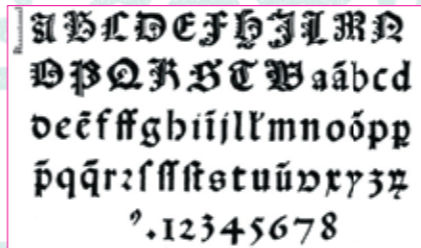 A B C D E F H I L M N
O P Q R S T W a ã b c d
d e ẽ f ff g h i ĩ j l l' m n o õ p ꝑ
p̃ q q̃ r ꝛ ſ ſſ ſt s t u ũ v x y z
ꝰ . 1 2 3 4 5 6 7 8